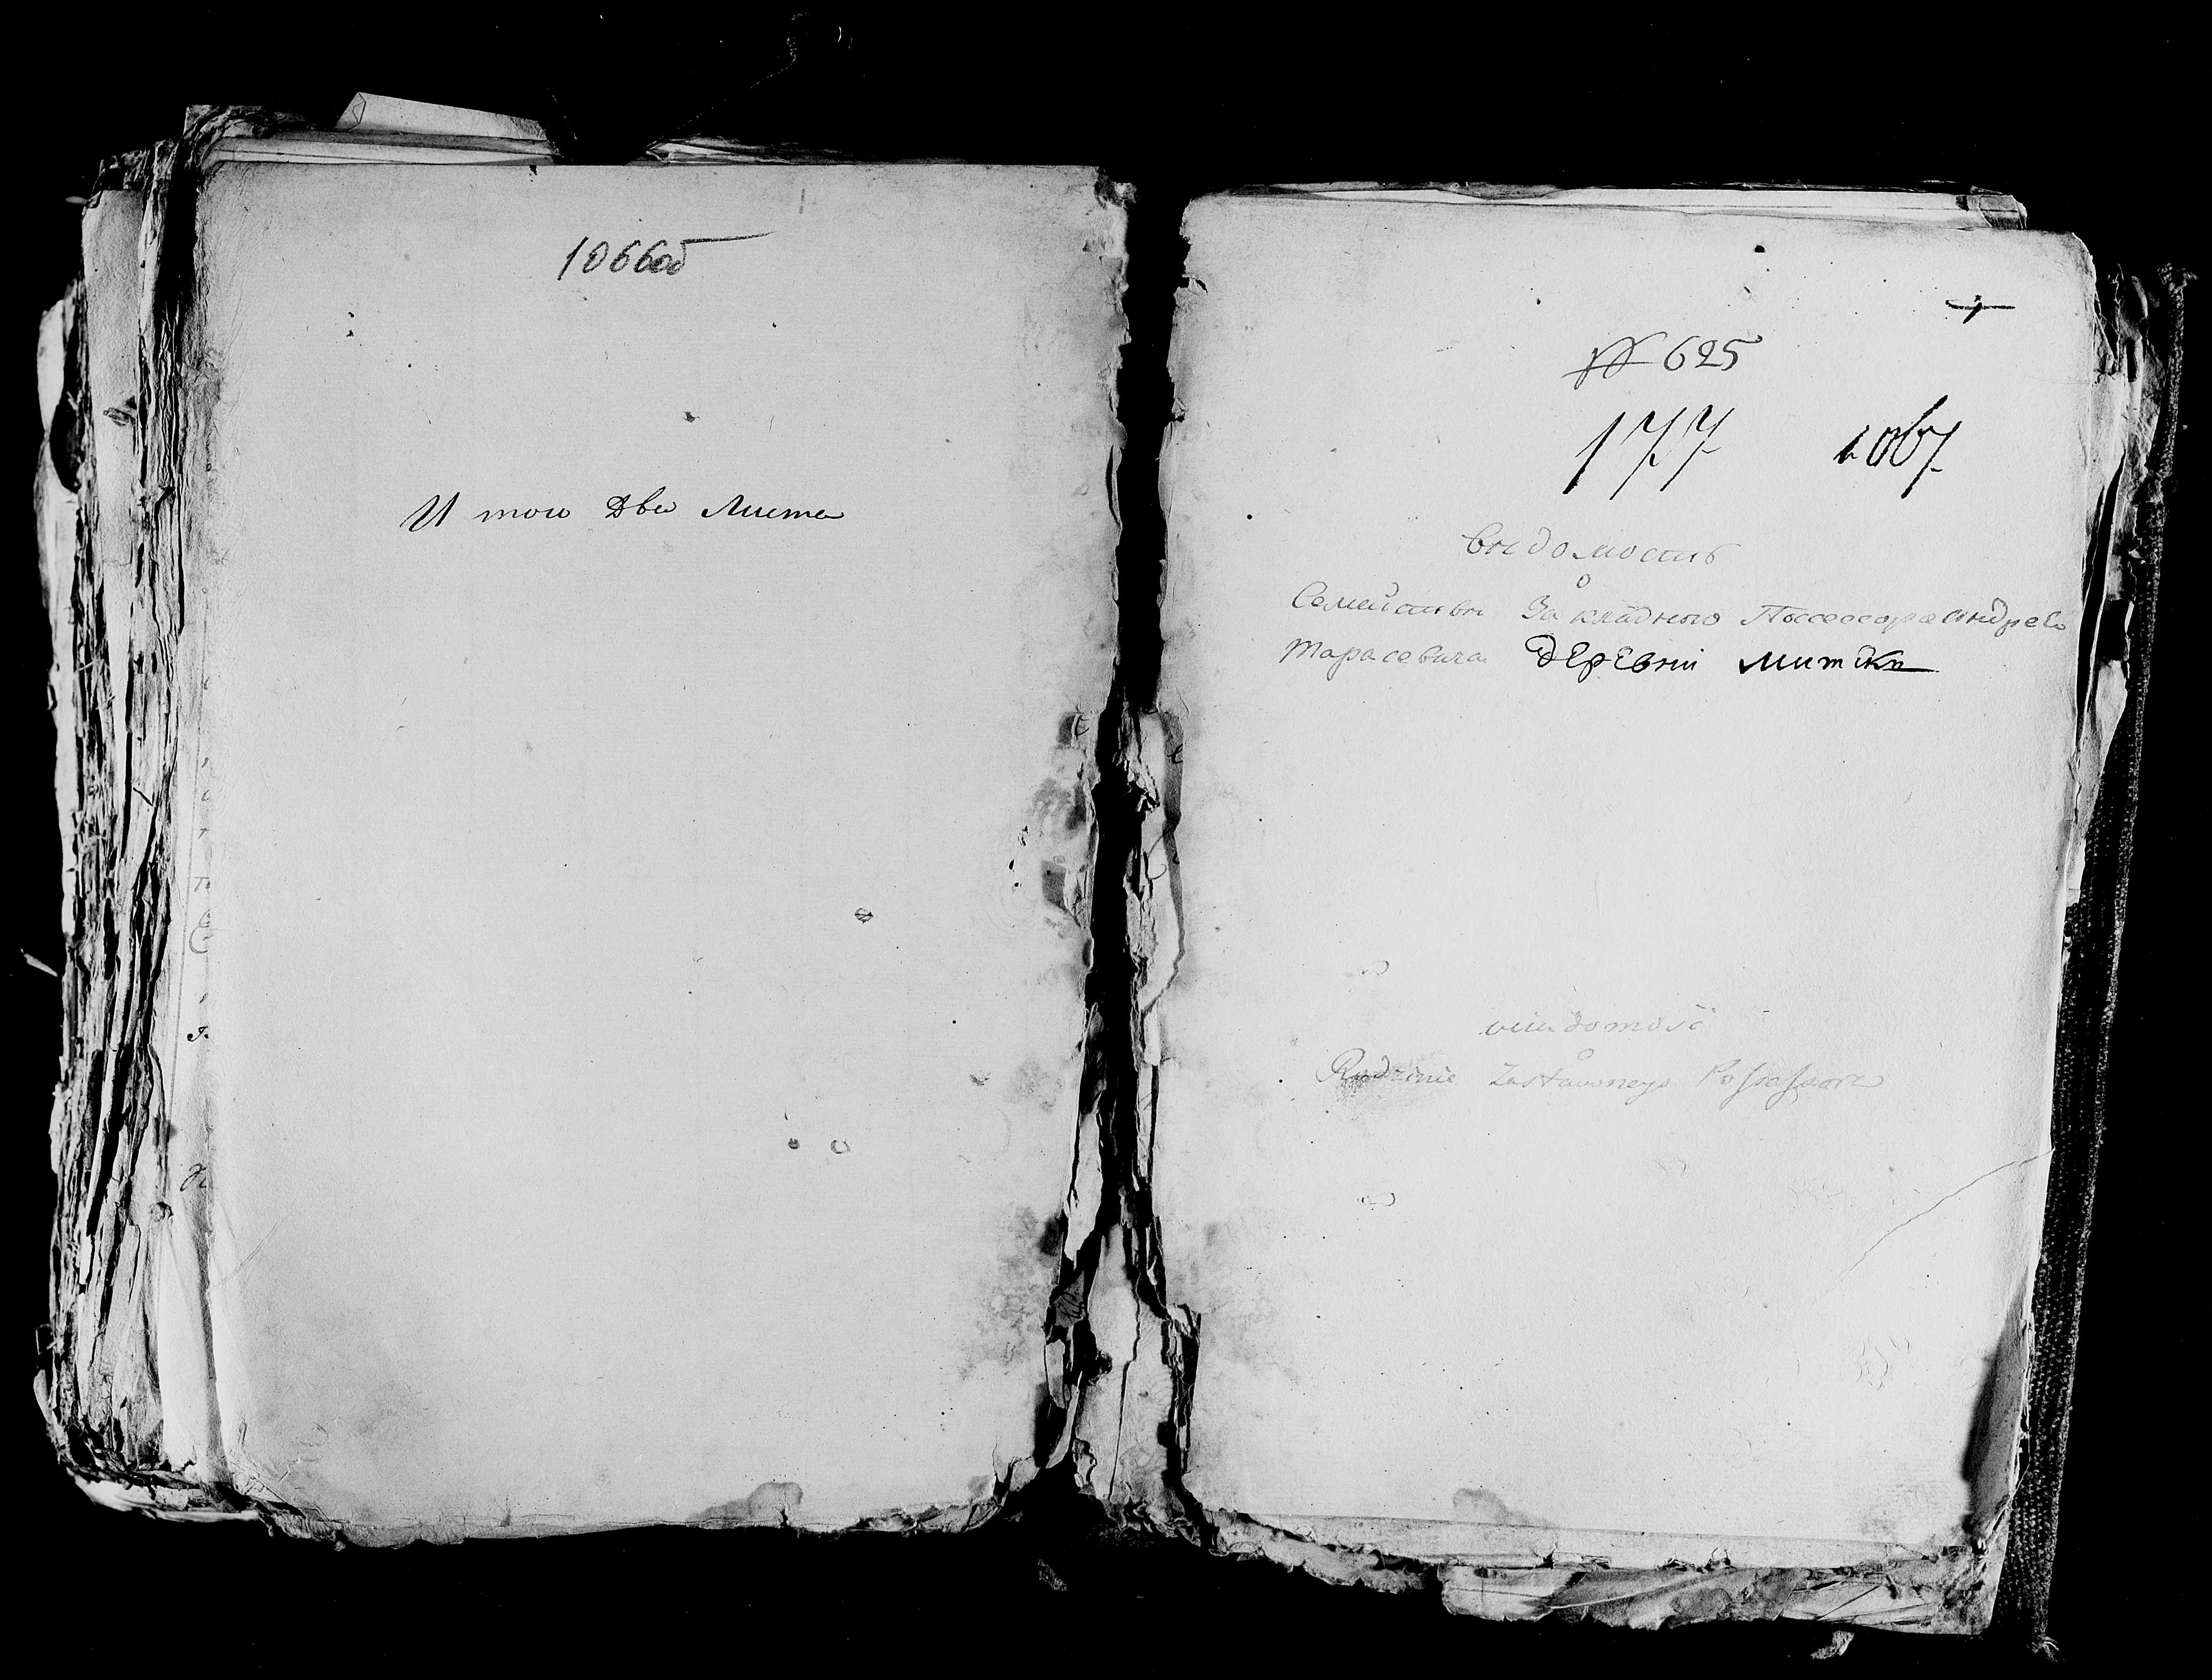 1066об
И того два листа
№ 625
177 1067
Ведомость
о
Семействе Закладного Поссесора Андрея
Тарасевича деревни Митьки
wiadomość
o
Rodzinie Zastawnego Possessora